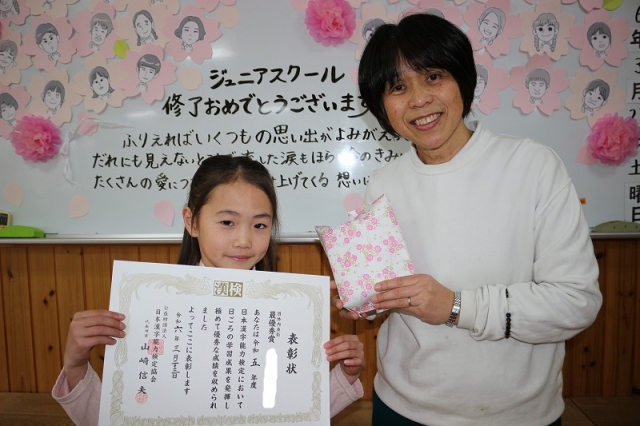 ジュニアスクール
修了おめでとうございます
ふりえればいくつもの思い出がよみがえ
だれにも見えないと
した涙もほら
のきみ
たくさんの愛に
上げてくる 想い
土曜日
漢検
表彰状
最優秀賞
あなたは令和五年度
日本漢字能力検定において
日ごろの学習成果を発揮し
極めて優秀な成績を収められ
ました
よってここに表彰します
令和六年
公益財団法人
日本漢字能力検定協会
山崎信夫